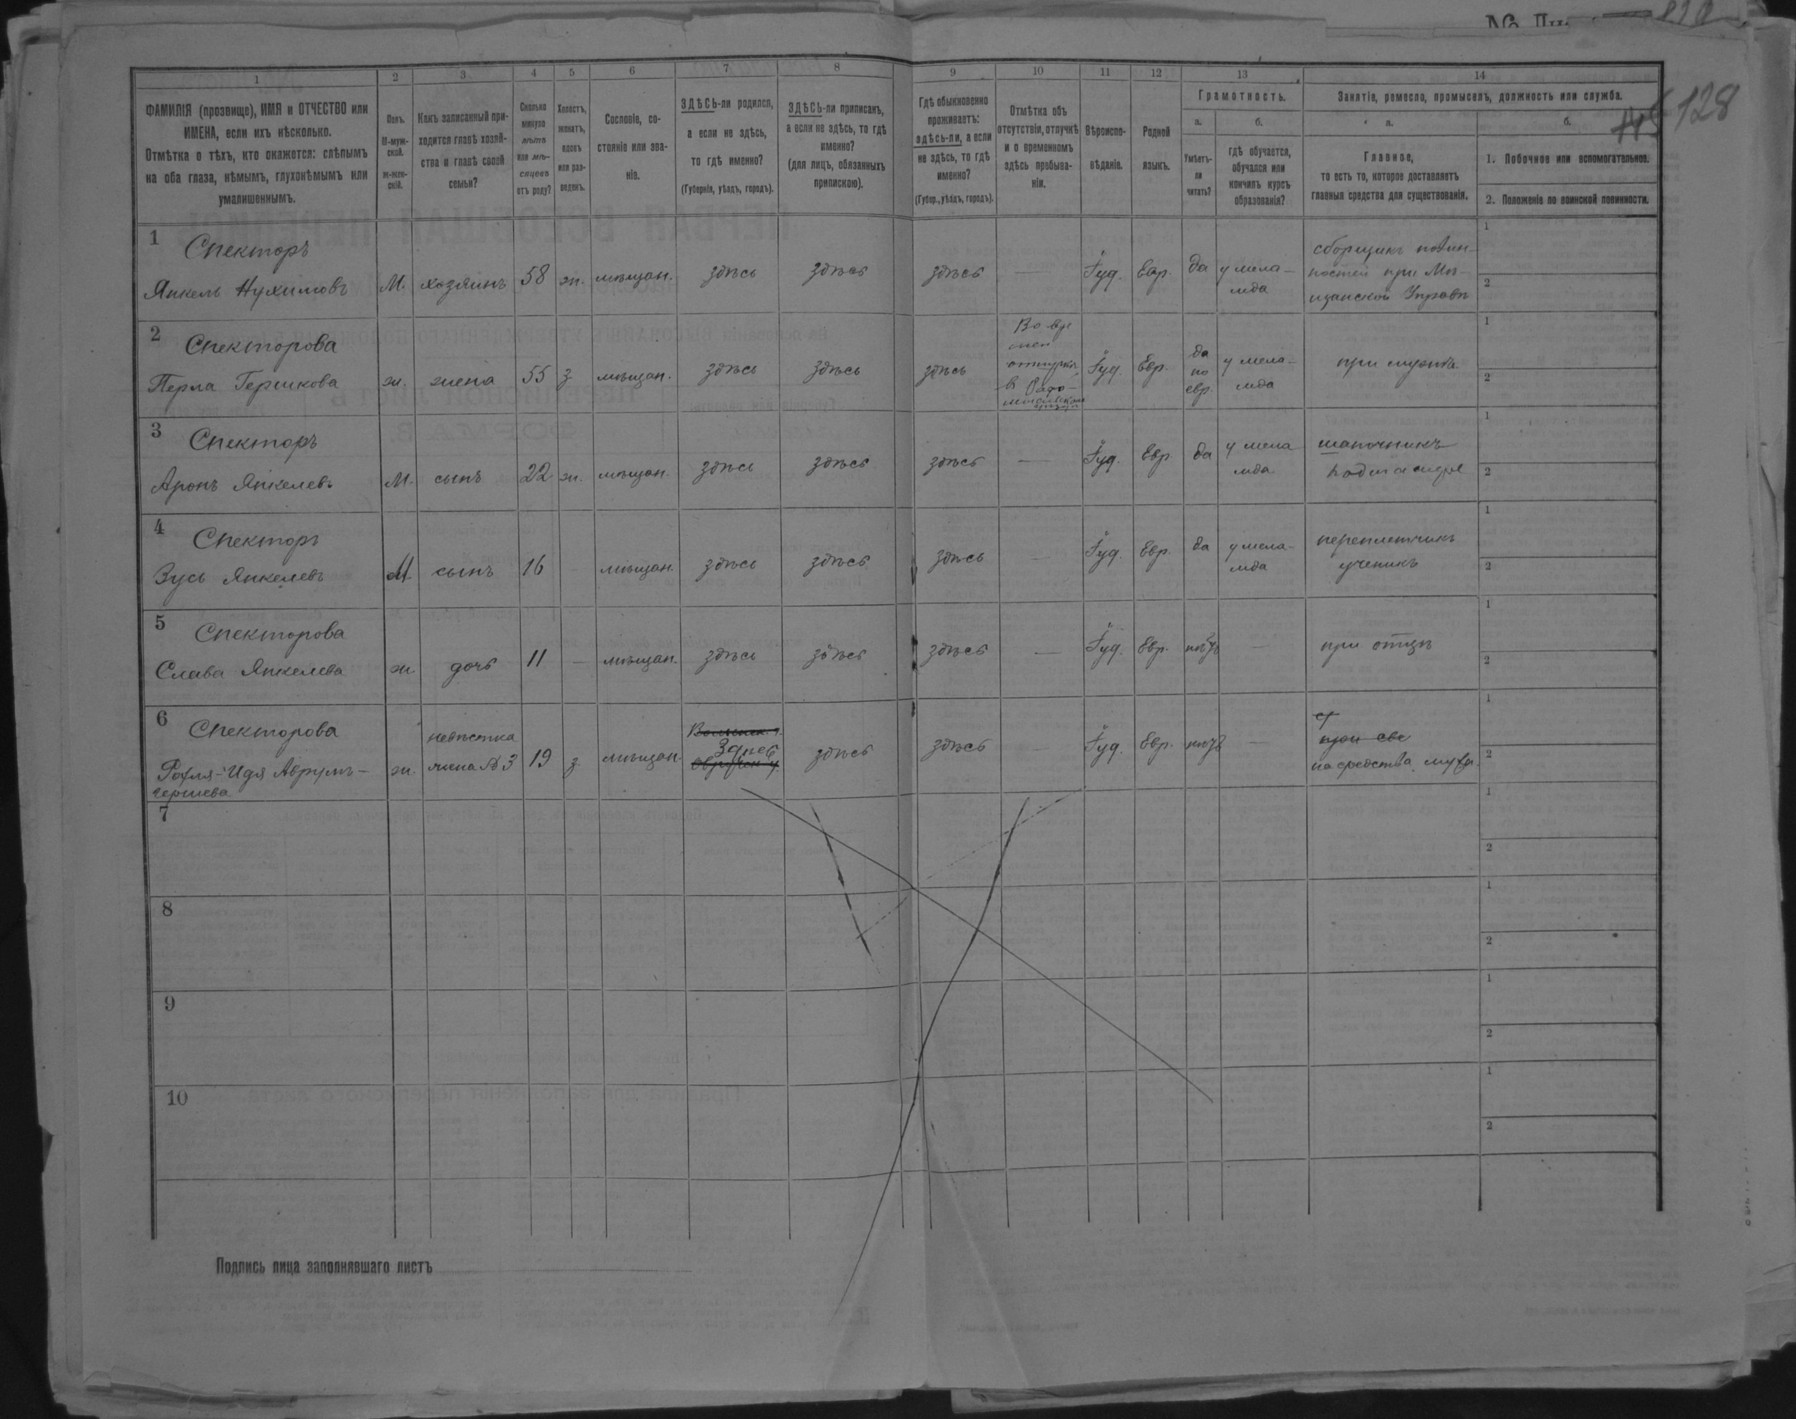 № Ли
128
1 2 3 4 5 6 7 8 9 10 11 12 13 14
ФАМИЛІЯ (прозвище), ИМЯ и ОТЧЕСТВО или
ИМЕНА, если ихъ нѣсколько.
Отмѣтка о тѣхъ, кто окажется: слѣпымъ
на оба глаза, нѣмымъ, глухонѣмымъ или
умалишеннымъ.
Полъ.
М-муж-
ской.
ж-жен-
скій.
Какъ записанный при-
ходится главѣ хозяй-
ства и главѣ своей
семьи?
Сколько
минуло
лѣтъ
или мѣ-
сяцевъ
отъ роду?
Холостъ,
женатъ,
вдовъ
или раз-
веденъ.
Сословіе, со-
стояніе или зва-
ніе.
ЗДѢСЬ-ли родился,
а если не здѣсь,
то гдѣ именно?
(Губернія, уѣздъ, городъ).
ЗДѢСЬ-ли приписанъ,
а если не здѣсь, то гдѣ
именно?
(для лицъ, обязанныхъ
припискою).
Гдѣ обыкновенно
проживаетъ:
здѣсь-ли, а если
не здѣсь, то гдѣ
именно?
(Губер., уѣздъ, городъ).
Отмѣтка объ
отсутствіи, отлучкѣ
и о временномъ
здѣсь пребыва-
ніи.
Вѣроиспо-
вѣданіе.
Родной
языкъ.
Грамотность.
а.
Умѣетъ-
ли
читать?
б.
гдѣ обучается,
обучался или
кончилъ курсъ
образованія?
Занятіе, ремесло, промыселъ, должность или служба.
а.
Главное,
то есть то, которое доставляетъ
главныя средства для существованія.
б.
1. Побочное или вспомогательное.
2. Положеніе по воинской повинности.
1
Спекторъ
Янкель Нухимовъ
М.
хозяинъ
58
ж.
мѣщан.
здѣсь
здѣсь
здѣсь
—
Іуд.
Евр.
да
у мела-
мда
сборщикъ повин-
ностей при Мѣ-
щанской Управѣ
1
2
2
Спекторова
Перла Гершкова
ж.
жена
55
з
мѣщан.
здѣсь
здѣсь
здѣсь
Іуд.
Евр.
да
по
евр.
у мела-
мда
при мужѣ
1
2
3
Спекторъ
Аронъ Янкелевъ
М.
сынъ
22
ж.
мѣщан.
здѣсь
здѣсь
здѣсь
—
Іуд.
Евр
да
у мела
мда
шапочникъ
1
2
4
Спекторъ
Зусь Янкелевъ
М.
сынъ
16
—
мѣщан.
здѣсь
здѣсь
здѣсь
—
Іуд.
Евр.
да
у мела-
мда
переплетчикъ
ученикъ
1
2
5
Спекторова
Слава Янкелева
ж.
дочь
11
—
мѣщан.
здѣсь
здѣсь
здѣсь
—
Іуд.
Евр.
нѣтъ
—
при отцѣ
1
2
6
Спекторова
Рохля-Идя Аврумъ-
гершева
ж.
невѣстка
жена №3
19
з.
мѣщан.
здѣсь
здѣсь
—
Іуд.
Евр.
нѣтъ
—
на средства мужа.
1
2
7
1
2
8
1
2
9
1
2
10
1
2
Подпись лица заполнявшаго листъ